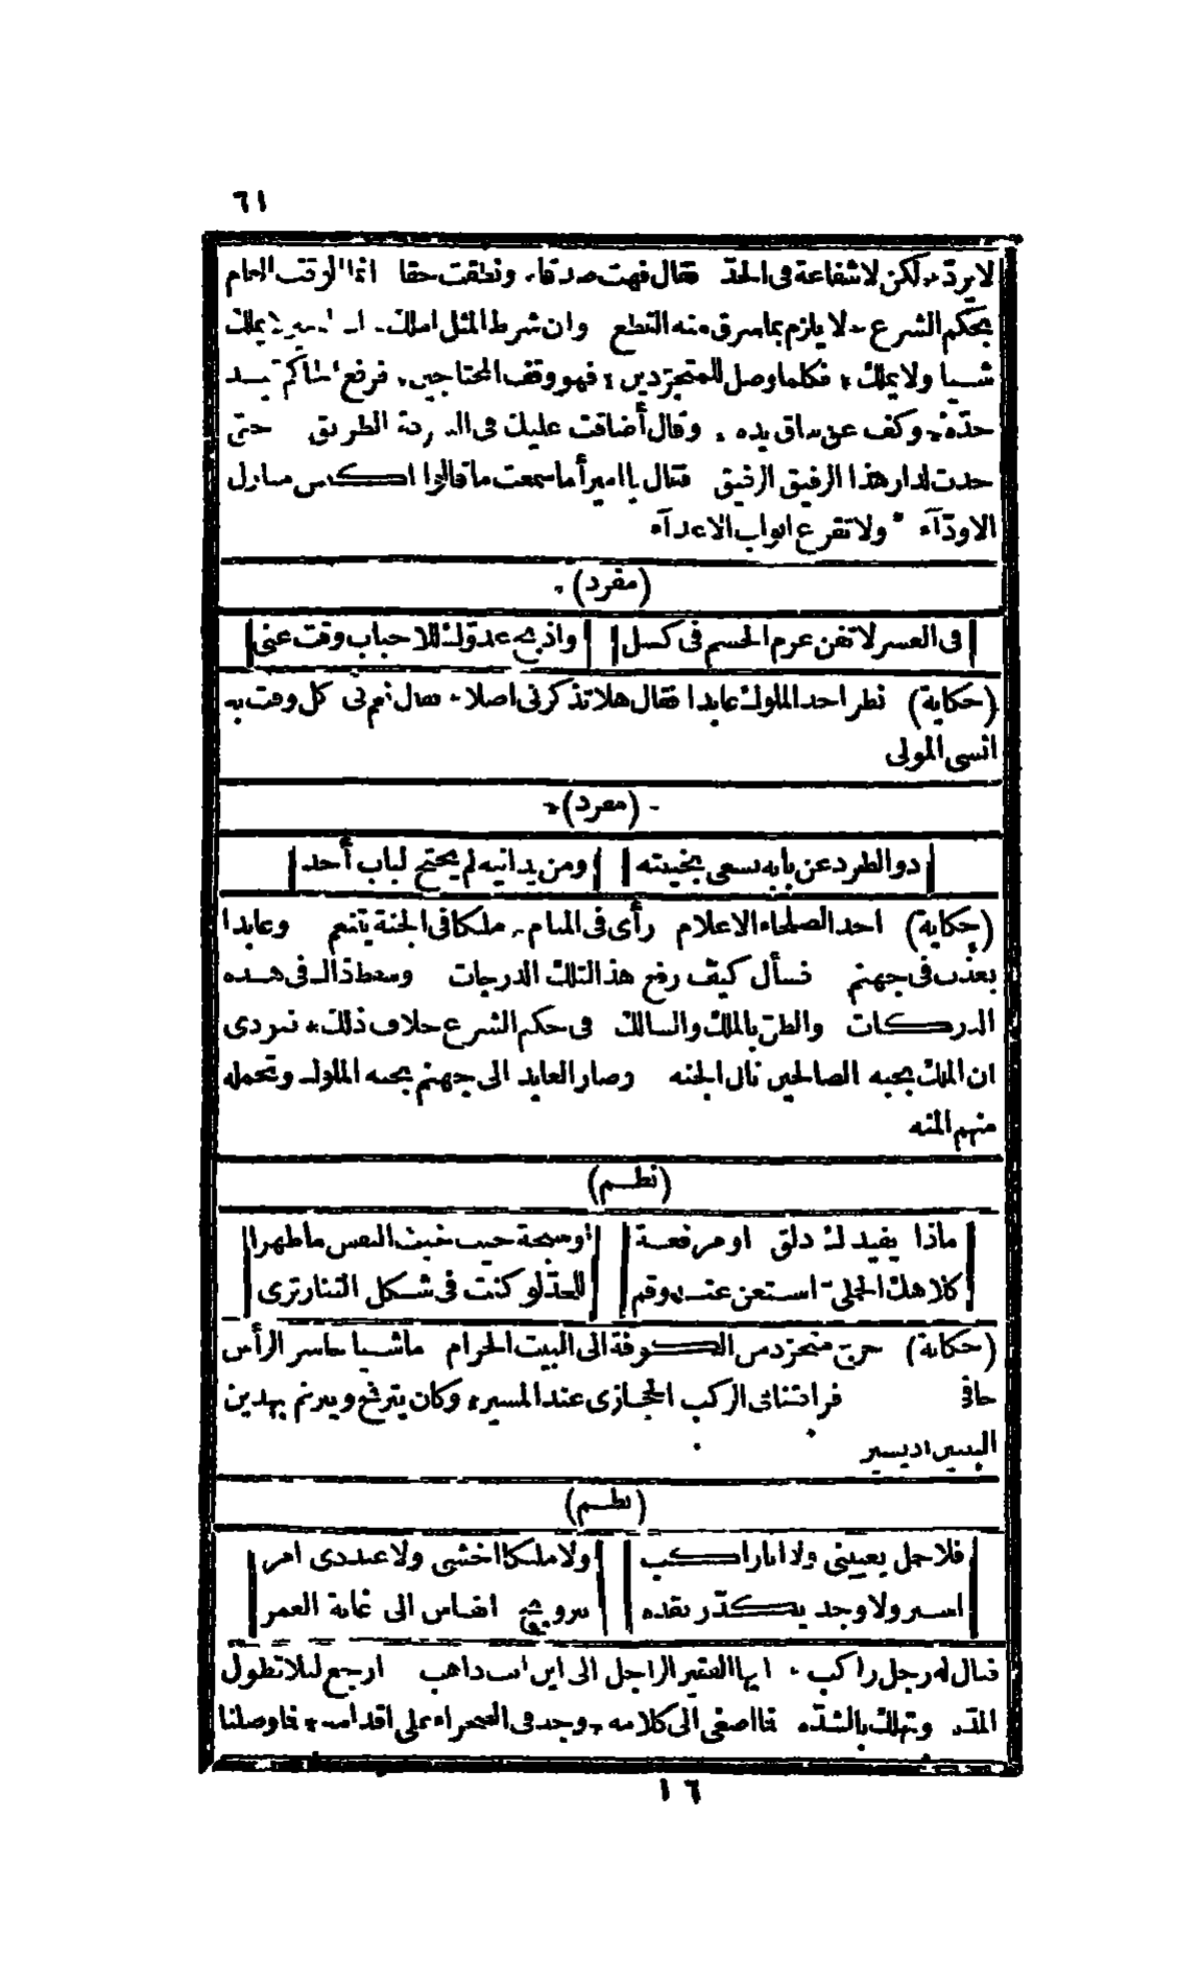 ٦١
لا يردّ * لكن لا شفاعة فى الحدّ فقال فهت صدقا * ونطقت حقا انما الوقف العام
بحكم الشرع * لا يلزم بما سرق منه القطع وان شرط المثل املك لا يملك
شيأ ولا يملك * فكلما وصل للمتجرّدين * فهو وقف المحتاجين * فرفع الحاكم يد
حدّه * وكف عن ساق يده * وقال أضاقت عليك الطريق حتى
جدت لدار هذا الرفيق الرفيق فقال يا امير أما سمعت ما قالوا اكنس منازل
الاودّآء * ولا تقرع ابواب الاعدآء
(مفرد)
فى العسر لا تفن عزم الجسم فى كسل واذبح عدوّك للاحباب وقت عنى
(حكاية) نظر احد الملوك عابدا فقال هلا تذكرنى اصلا * فقال نعم فى كل وقت به
انسى المولى
(مفرد)
ذو الطرد عن بابه يسعى بخيبته ومن يدانيه لم يحتج لباب أحد
(حكاية) احد الصلحاء الاعلام رأى فى المنام * ملكا فى الجنة يتنعم وعابدا
يعذب فى جهنم فسأل كيف رفع هذا لتلك الدرجات وسقط ذاك فى هذه
الدركات والظن بالملك والسالك فى حكم الشرع خلاف ذلك * فنودى
ان الملك بحبه الصالحين نال الجنه وصار العابد الى جهنم بحبه الملوك وتحمله
منهم المنه
(نظم)
ماذا يفيد لك دلق او مرقعة او سبحة حيث خبث النفس ما طهرا
كلاهك الجلى استعن عنه وقم للعذّ لو كنت فى شكل التتار ترى
(حكاية) خرج متجرّد من الكوفة الى البيت الحرام ماشيا حاسر الرأس
حاف فرافقنا فى الركب الحجازى عند المسير * وكان يترنح ويترنم بهذين
البيتين اذ يسير
(نظم)
فلا جمل يعيينى ولا انا راكب ولا ملكا اخشى ولا عندى امر
اسير ولا وجد يكدّر فقده بترويح انفاس الى غاية العمر
فقال له رجل راكب * ايها الفقير الراجل الى اين انت ذاهب ارجع لئلا تطول
المدّه وتهلك بالشدّه فما اصغى الى كلامه * وجد فى الصحراء على اقدامه * فلما وصلنا
١٦